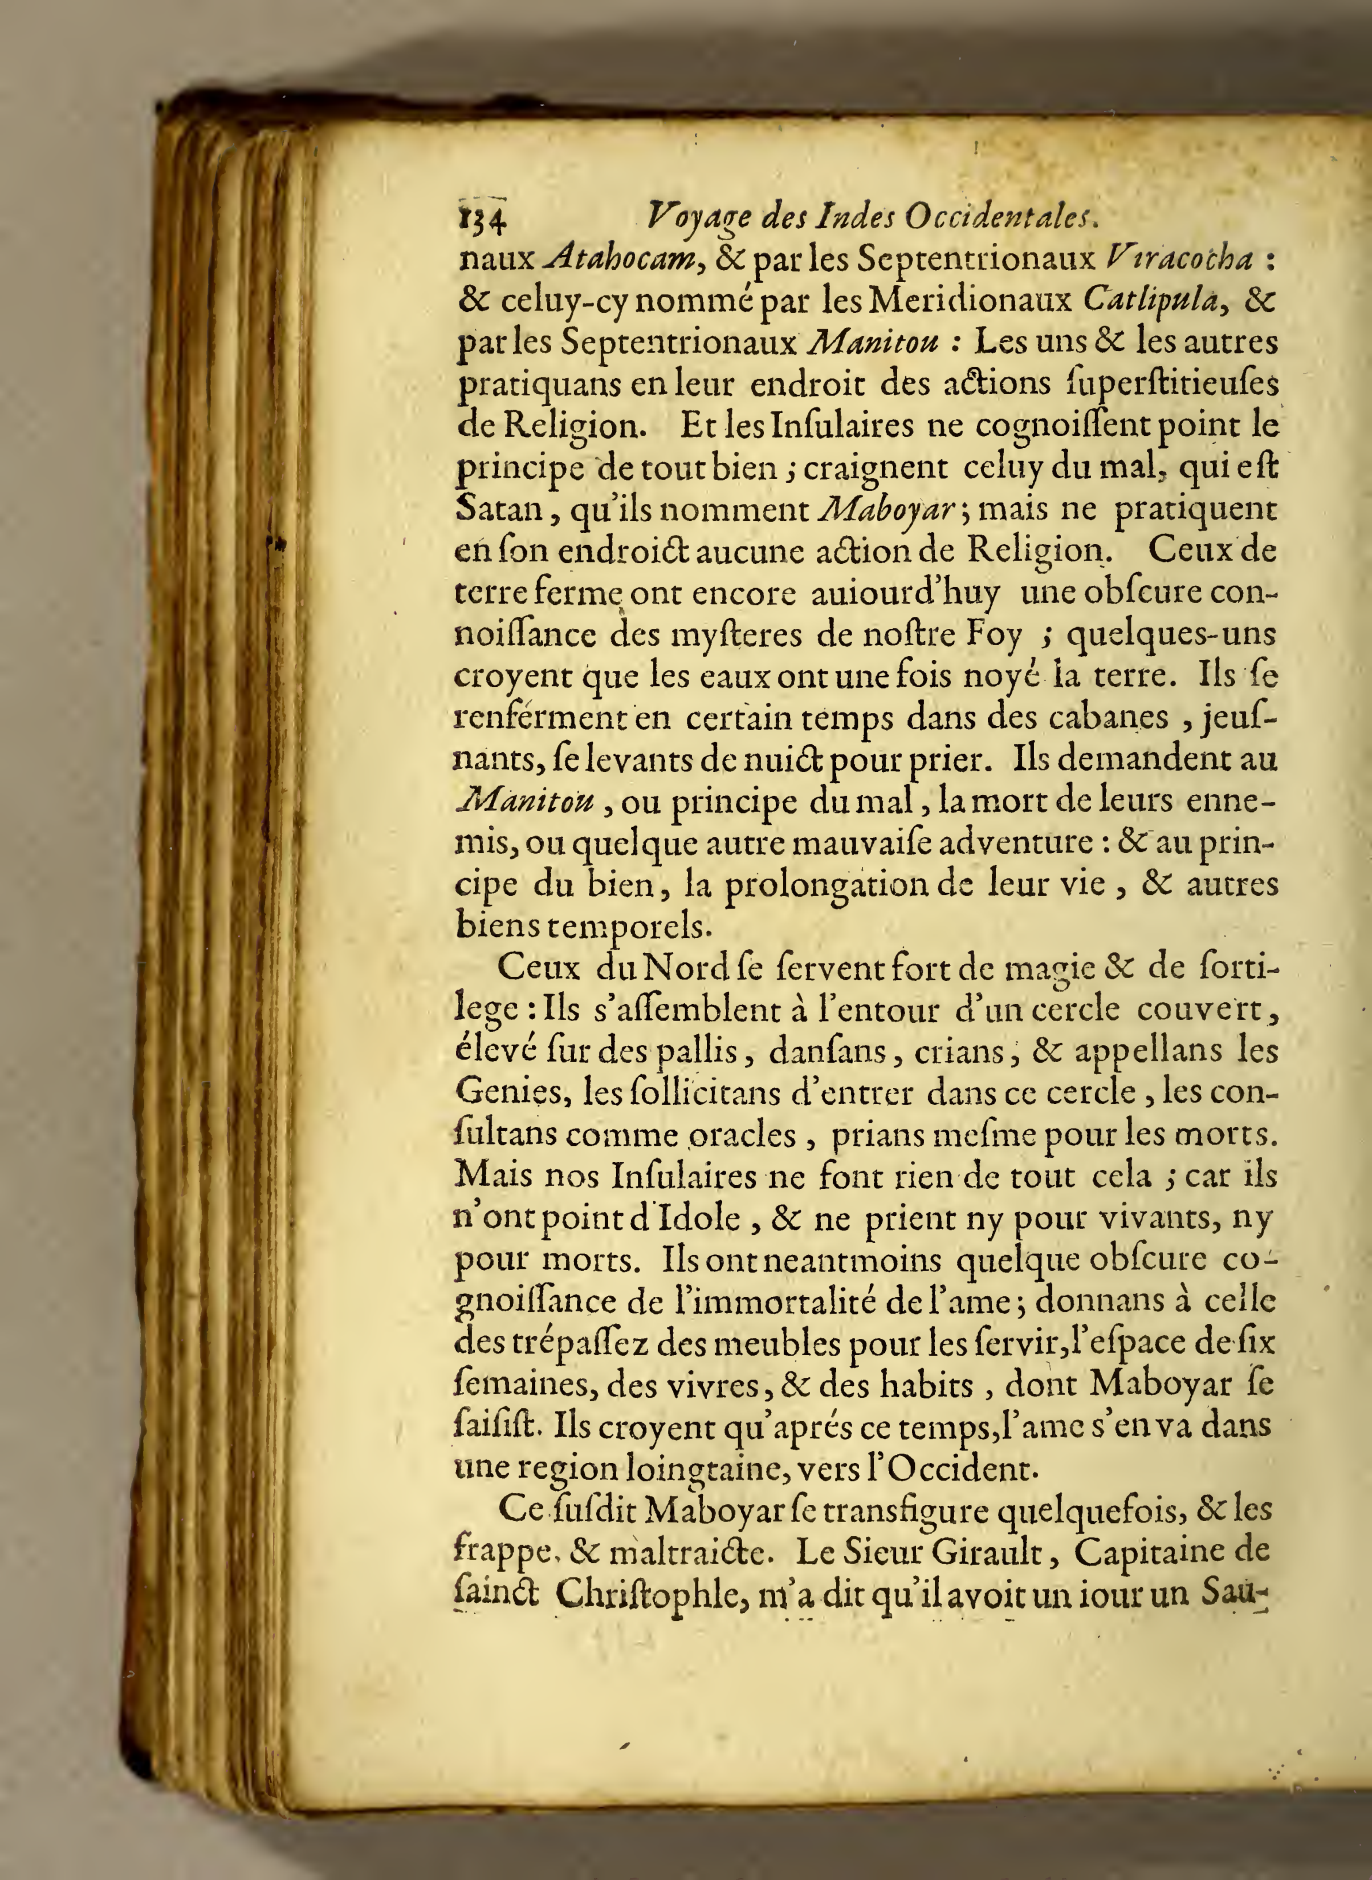 134 Voyage des Indes Occidentales.
naux Atahocam, & par les Septentrionaux Viracocha :
& celuy-cy nommé par les Meridionaux Catlipula, &
par les Septentrionaux Manitou : Les uns & les autres
pratiquans en leur endroit des actions ſuperſtitieuſes
de Religion. Et les Inſulaires ne cognoiſſent point le
principe de tout bien ; craignent celuy du mal, qui eſt
Satan, qu'ils nomment Maboyar ; mais ne pratiquent
en ſon endroict aucune action de Religion. Ceux de
terre ferme ont encore auiourd'huy une obſcure con-
noiſſance des myſteres de noſtre Foy ; quelques-uns
croyent que les eaux ont une fois noyé la terre. Ils ſe
renferment en certain temps dans des cabanes , jeuſ-
nants, ſe levants de nuict pour prier. Ils demandent au
Manitou , ou principe du mal , la mort de leurs enne-
mis, ou quelque autre mauvaiſe adventure : & au prin-
cipe du bien, la prolongation de leur vie , & autres
biens temporels.
Ceux du Nord ſe ſervent fort de magie & de ſorti-
lege : Ils s'aſſemblent à l'entour d'un cercle couvert,
élevé ſur des pallis, danſans, crians, & appellans les
Genies, les ſollicitans d'entrer dans ce cercle , les con-
ſultans comme oracles , prians meſme pour les morts.
Mais nos Inſulaires ne font rien de tout cela ; car ils
n'ont point d'Idole , & ne prient ny pour vivants, ny
pour morts. Ils ont neantmoins quelque obſcure co-
gnoiſſance de l'immortalité de l'ame ; donnans à celle
des trépaſſez des meubles pour les ſervir, l'eſpace de ſix
ſemaines, des vivres, & des habits , dont Maboyar ſe
ſaiſiſt. Ils croyent qu'aprés ce temps, l'ame s'en va dans
une region loingtaine, vers l'Occident.
Ce ſuſdit Maboyar ſe transfigure quelquefois, & les
frappe, & maltraicte. Le Sieur Girault, Capitaine de
ſainct Chriſtophle, m'a dit qu'il avoit un iour un Sau-